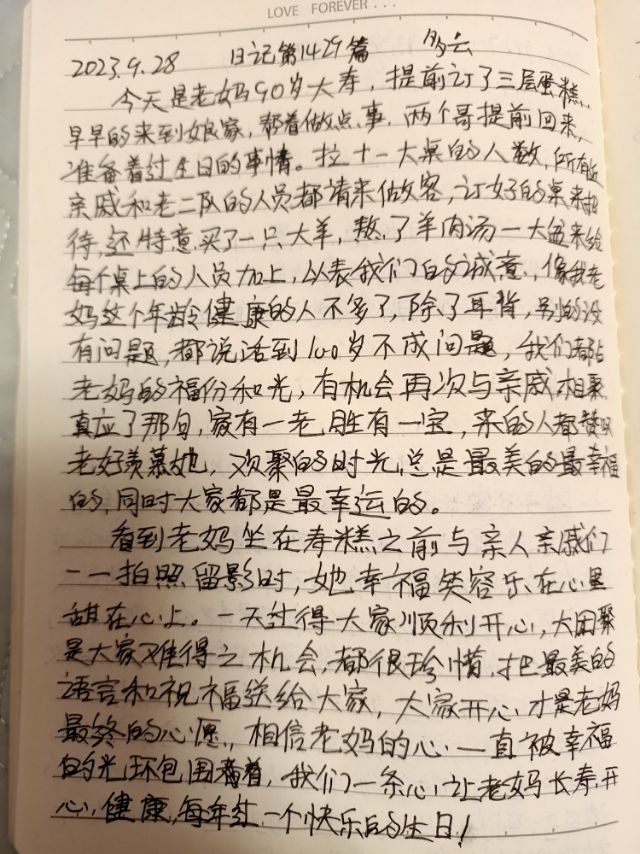 LOVE FOREVER...
2023.9.28 日记第1429篇 多云
今天是老妈90岁大寿，提前订了三层蛋糕，
早早的来到娘家，帮着做点事，两个哥提前回来，
准备着过生日的事情。拉十一大桌的人数，所有
亲戚和老二队的人员都请来做客，订好的桌来招
待，还特意买了一只大羊，熬了羊肉汤一大盆来给
每个桌上的人员加上，以表我们的诚意，像我老
妈这个年龄健康的人不多了，除了耳背，别的没
有问题，都说活到100岁不成问题，我们都占
老妈的福份和光，有机会再次与亲戚相聚
真应了那句，家有一老，胜有一宝，来的人都赞叹
老好羡慕她，欢聚的时光总是最美的最幸福
的，同时大家都是最幸运的。
看到老妈坐在寿糕之前与亲人亲戚们
一一拍照留影时，她幸福笑容乐在心里
甜在心上。一天过得大家顺利开心，大团聚
是大家难得之机会，都很珍惜，把最美的
语言和祝福送给大家，大家开心才是老妈
最终的心愿，相信老妈的心一直被幸福
的光环包围着，我们一条心让老妈长寿开
心，健康，每年红一个快乐的生日！